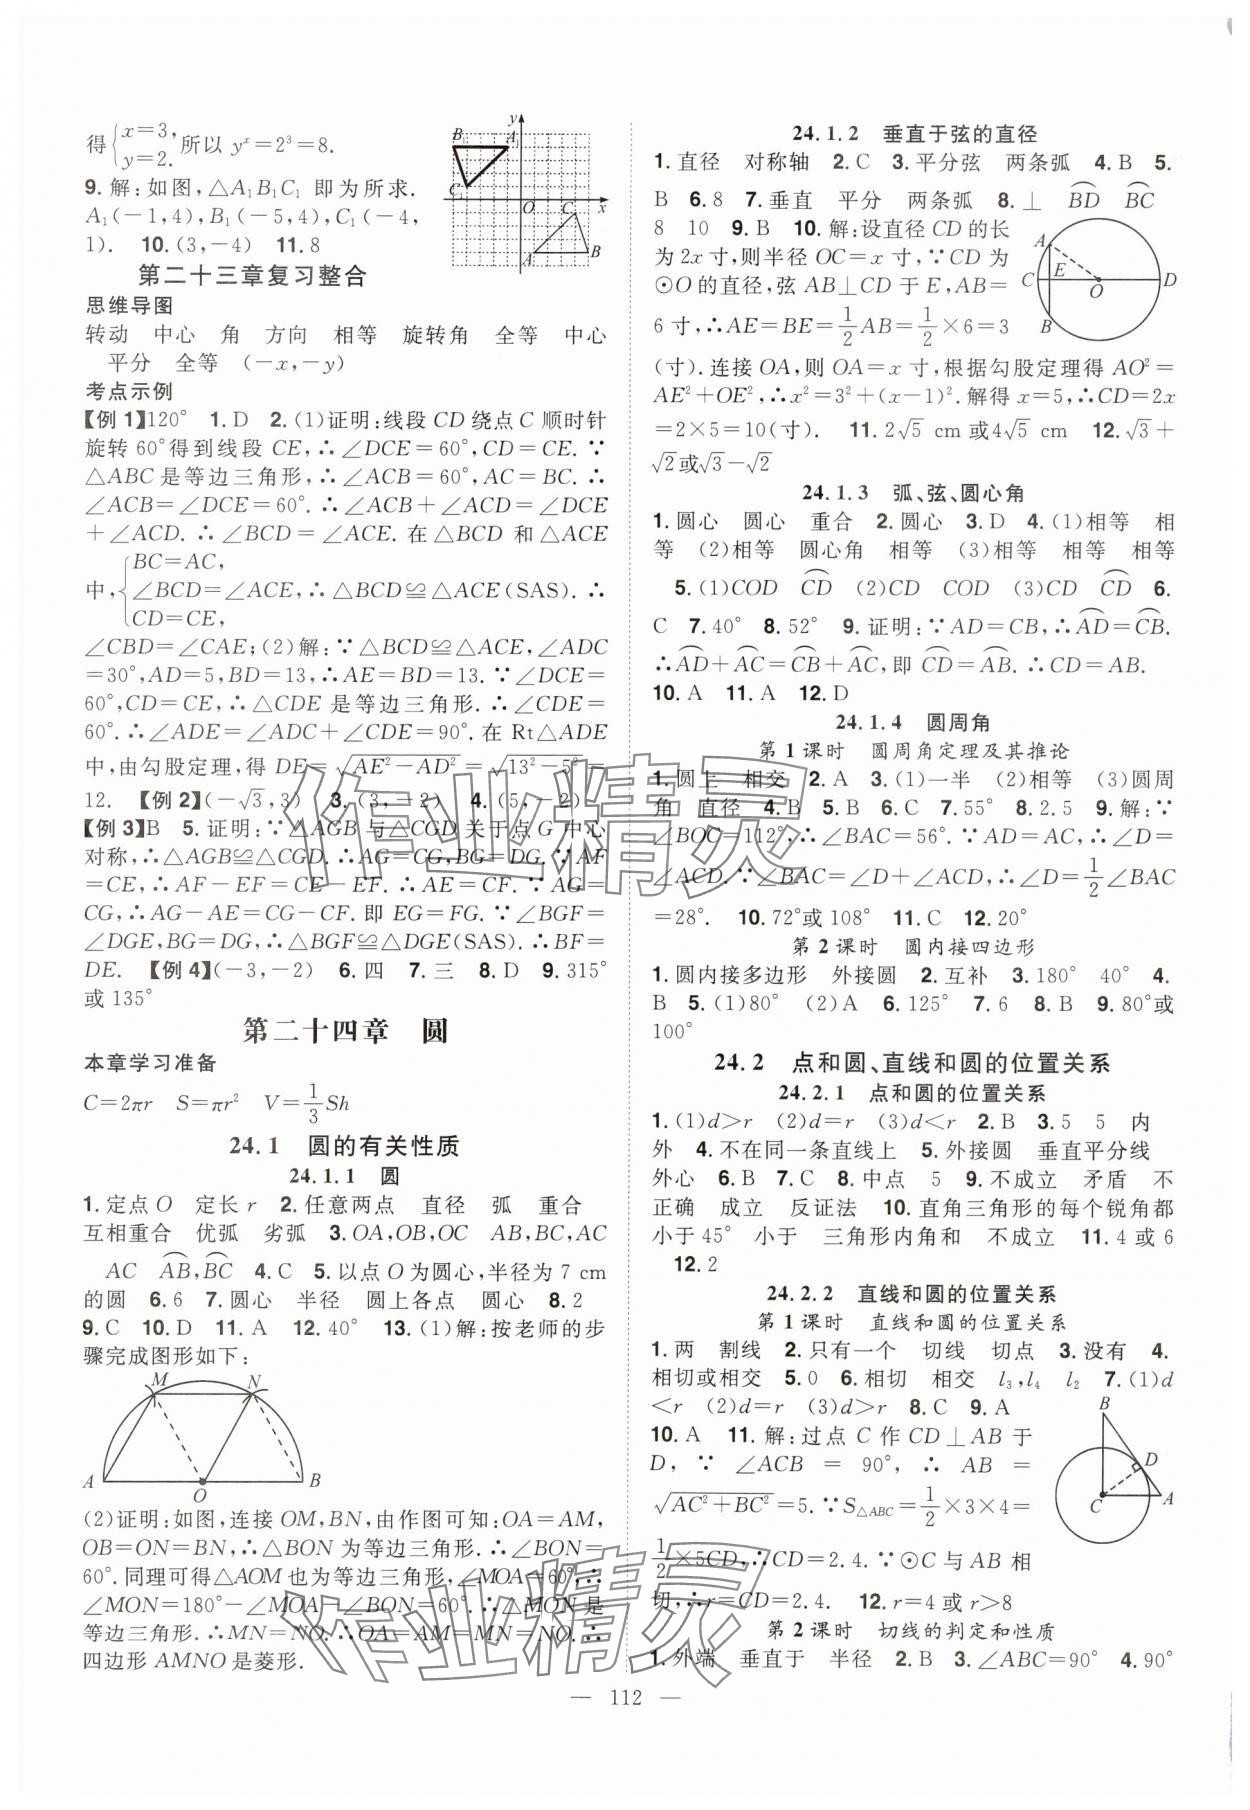 得{x=3, y=2.所以 yˣ=2³=8.
9.解:如图,△A₁B₁C₁ 即为所求.
A₁(-1,4),B₁(-5,4),C₁(-4,
1). 10.(3,-4) 11.8
B₁ A₁ C₁ y O x A B C
第二十三章复习整合
思维导图
转动 中心 角 方向 相等 旋转角 全等 中心
平分 全等 (-x,-y)
考点示例
【例1】120° 1.D 2.(1)证明:线段 CD 绕点 C 顺时针
旋转 60°得到线段 CE,∴∠DCE=60°,CD=CE.∵
△ABC 是等边三角形,∴∠ACB=60°,AC=BC.∴
∠ACB=∠DCE=60°.∴∠ACB+∠ACD=∠DCE
+∠ACD.∴∠BCD=∠ACE.在△BCD 和△ACE
中,{BC=AC, ∠BCD=∠ACE, CD=CE, ∴△BCD≌△ACE(SAS).∴
∠CBD=∠CAE;(2)解:∵△BCD≌△ACE,∠ADC
=30°,AD=5,BD=13,∴AE=BD=13.∵∠DCE=
60°,CD=CE,∴△CDE 是等边三角形.∴∠CDE=
60°.∴∠ADE=∠ADC+∠CDE=90°.在 Rt△ADE
中,由勾股定理,得 DE=√(AE²-AD²)=√(13²-5²)=
12. 【例2】(-√3,3) 3.(3,-2) 4.(5,-2)
【例3】B 5.证明:∵△AGB 与△CGD 关于点 G 中心
对称,∴△AGB≌△CGD.∴AG=CG,BG=DG.∵AF
=CE,∴AF-EF=CE-EF.∴AE=CF.∵AG=
CG,∴AG-AE=CG-CF.即 EG=FG.∵∠BGF=
∠DGE,BG=DG,∴△BGF≌△DGE(SAS).∴BF=
DE. 【例4】(-3,-2) 6.四 7.三 8.D 9.315°
或 135°
第二十四章 圆
本章学习准备
C=2πr S=πr² V=1/3Sh
24.1 圆的有关性质
24.1.1 圆
1.定点 O 定长 r 2.任意两点 直径 弧 重合
互相重合 优弧 劣弧 3.OA,OB,OC AB,BC,AC
AC A͡B,B͡C 4.C 5.以点 O 为圆心,半径为 7 cm
的圆 6.6 7.圆心 半径 圆上各点 圆心 8.2
9.C 10.D 11.A 12.40° 13.(1)解:按老师的步
骤完成图形如下:
M N A O B
(2)证明:如图,连接 OM,BN,由作图可知:OA=AM,
OB=ON=BN,∴△BON 为等边三角形.∴∠BON=
60°.同理可得△AOM 也为等边三角形,∠MOA=60°.∴
∠MON=180°-∠MOA-∠BON=60°.∴△MON 是
等边三角形.∴MN=NO.∴OA=AM=MN=NO.∴
四边形 AMNO 是菱形.
24.1.2 垂直于弦的直径
1.直径 对称轴 2.C 3.平分弦 两条弧 4.B 5.
B 6.8 7.垂直 平分 两条弧 8.⊥ B͡D B͡C
8 10 9.B 10.解:设直径 CD 的长
为 2x 寸,则半径 OC=x 寸,∵CD 为
⊙O 的直径,弦 AB⊥CD 于 E,AB=
6 寸,∴AE=BE=1/2AB=1/2×6=3
A E C O D B
(寸).连接 OA,则 OA=x 寸,根据勾股定理得 AO²=
AE²+OE²,∴x²=3²+(x-1)².解得 x=5,∴CD=2x
=2×5=10(寸). 11.2√5 cm或4√5 cm 12.√3+
√2或√3-√2
24.1.3 弧、弦、圆心角
1.圆心 圆心 重合 2.圆心 3.D 4.(1)相等 相
等 (2)相等 圆心角 相等 (3)相等 相等 相等
5.(1)COD C͡D (2)CD COD (3)CD C͡D 6.
C 7.40° 8.52° 9.证明:∵AD=CB,∴A͡D=C͡B.
∴A͡D+A͡C=C͡B+A͡C,即 C͡D=A͡B.∴CD=AB.
10.A 11.A 12.D
24.1.4 圆周角
第1课时 圆周角定理及其推论
1.圆上 相交 2.A 3.(1)一半 (2)相等 (3)圆周
角 直径 4.B 5.B 6.C 7.55° 8.2.5 9.解:∵
∠BOC=112°,∴∠BAC=56°.∵AD=AC,∴∠D=
∠ACD.∵∠BAC=∠D+∠ACD,∴∠D=1/2∠BAC
=28°. 10.72°或 108° 11.C 12.20°
第2课时 圆内接四边形
1.圆内接多边形 外接圆 2.互补 3.180° 40° 4.
B 5.(1)80° (2)A 6.125° 7.6 8.B 9.80°或
100°
24.2 点和圆、直线和圆的位置关系
24.2.1 点和圆的位置关系
1.(1)d>r (2)d=r (3)d<r 2.B 3.5 5 内
外 4.不在同一条直线上 5.外接圆 垂直平分线
外心 6.B 7.C 8.中点 5 9.不成立 矛盾 不
正确 成立 反证法 10.直角三角形的每个锐角都
小于 45° 小于 三角形内角和 不成立 11.4 或 6
12.2
24.2.2 直线和圆的位置关系
第1课时 直线和圆的位置关系
1.两 割线 2.只有一个 切线 切点 3.没有 4.
相切或相交 5.0 6.相切 相交 l₃,l₄ l₂ 7.(1)d
<r (2)d=r (3)d>r 8.C 9.A
10.A 11.解:过点 C 作 CD⊥AB 于
D,∵∠ACB=90°,∴AB=
√(AC²+BC²)=5.∵S△ABC=1/2×3×4=
1/2×5CD,∴CD=2.4.∵⊙C 与 AB 相
切,∴r=CD=2.4. 12.r=4 或 r>8
B D C A
第2课时 切线的判定和性质
1.外端 垂直于 半径 2.B 3.∠ABC=90° 4.90°
— 112 —
作业精灵
作业精灵